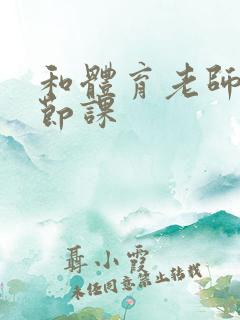 和體育老師
節課
聶小霞
未經同意禁止轉載